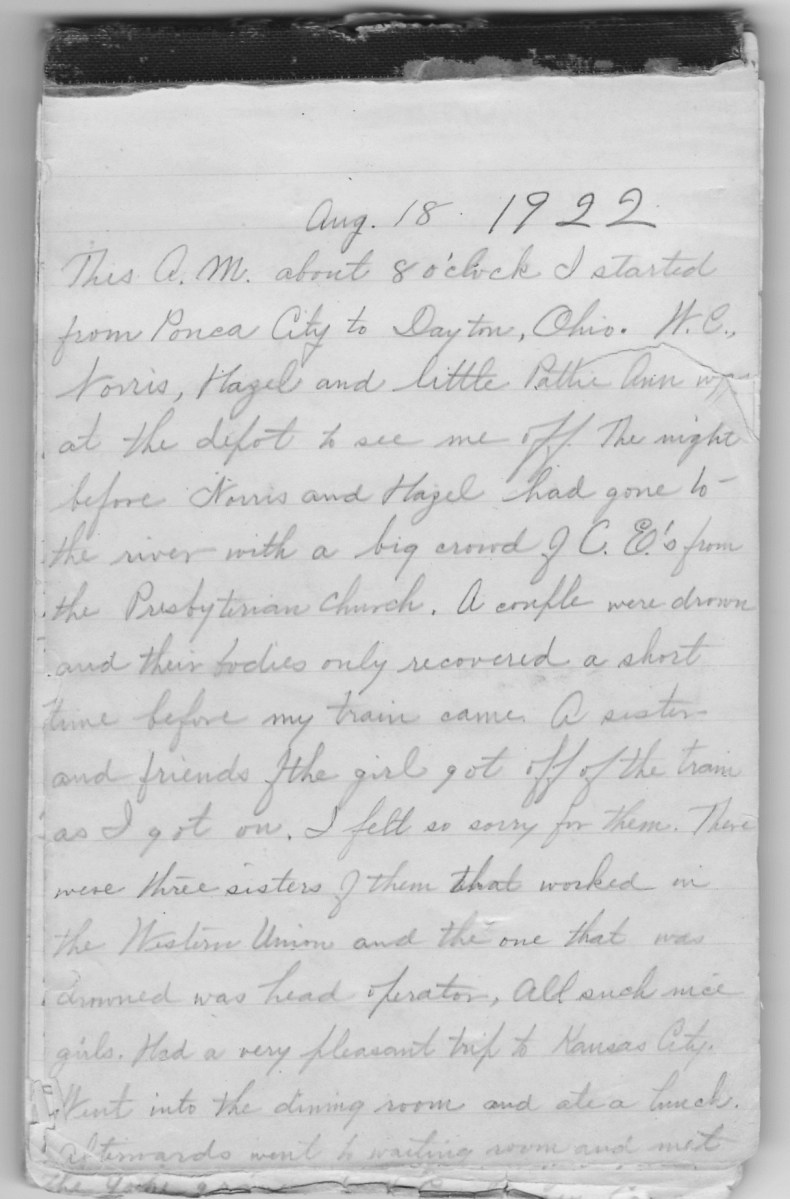 Aug. 18. 1922
This A. M. about 8 o'clock I started
from Ponca City to Dayton, Ohio. W. C.,
Norris, Hazel and little Pattie Ann was
at the depot to see me off. The night
before Norris and Hazel had gone to
the river with a big crowd of C. E.'s from
the Presbyterian church. A couple were drown
and their bodies only recovered a short
time before my train came. A sister
and friends of the girl got off of the train
as I got on. I felt so sorry for them. There
were three sisters of them that worked in
the Western Union and the one that was
drowned was head operator, All such nice
girls. Had a very pleasant trip to Kansas City.
Went into the dining room and ate a lunch.
afterwards went to waiting room and met
the